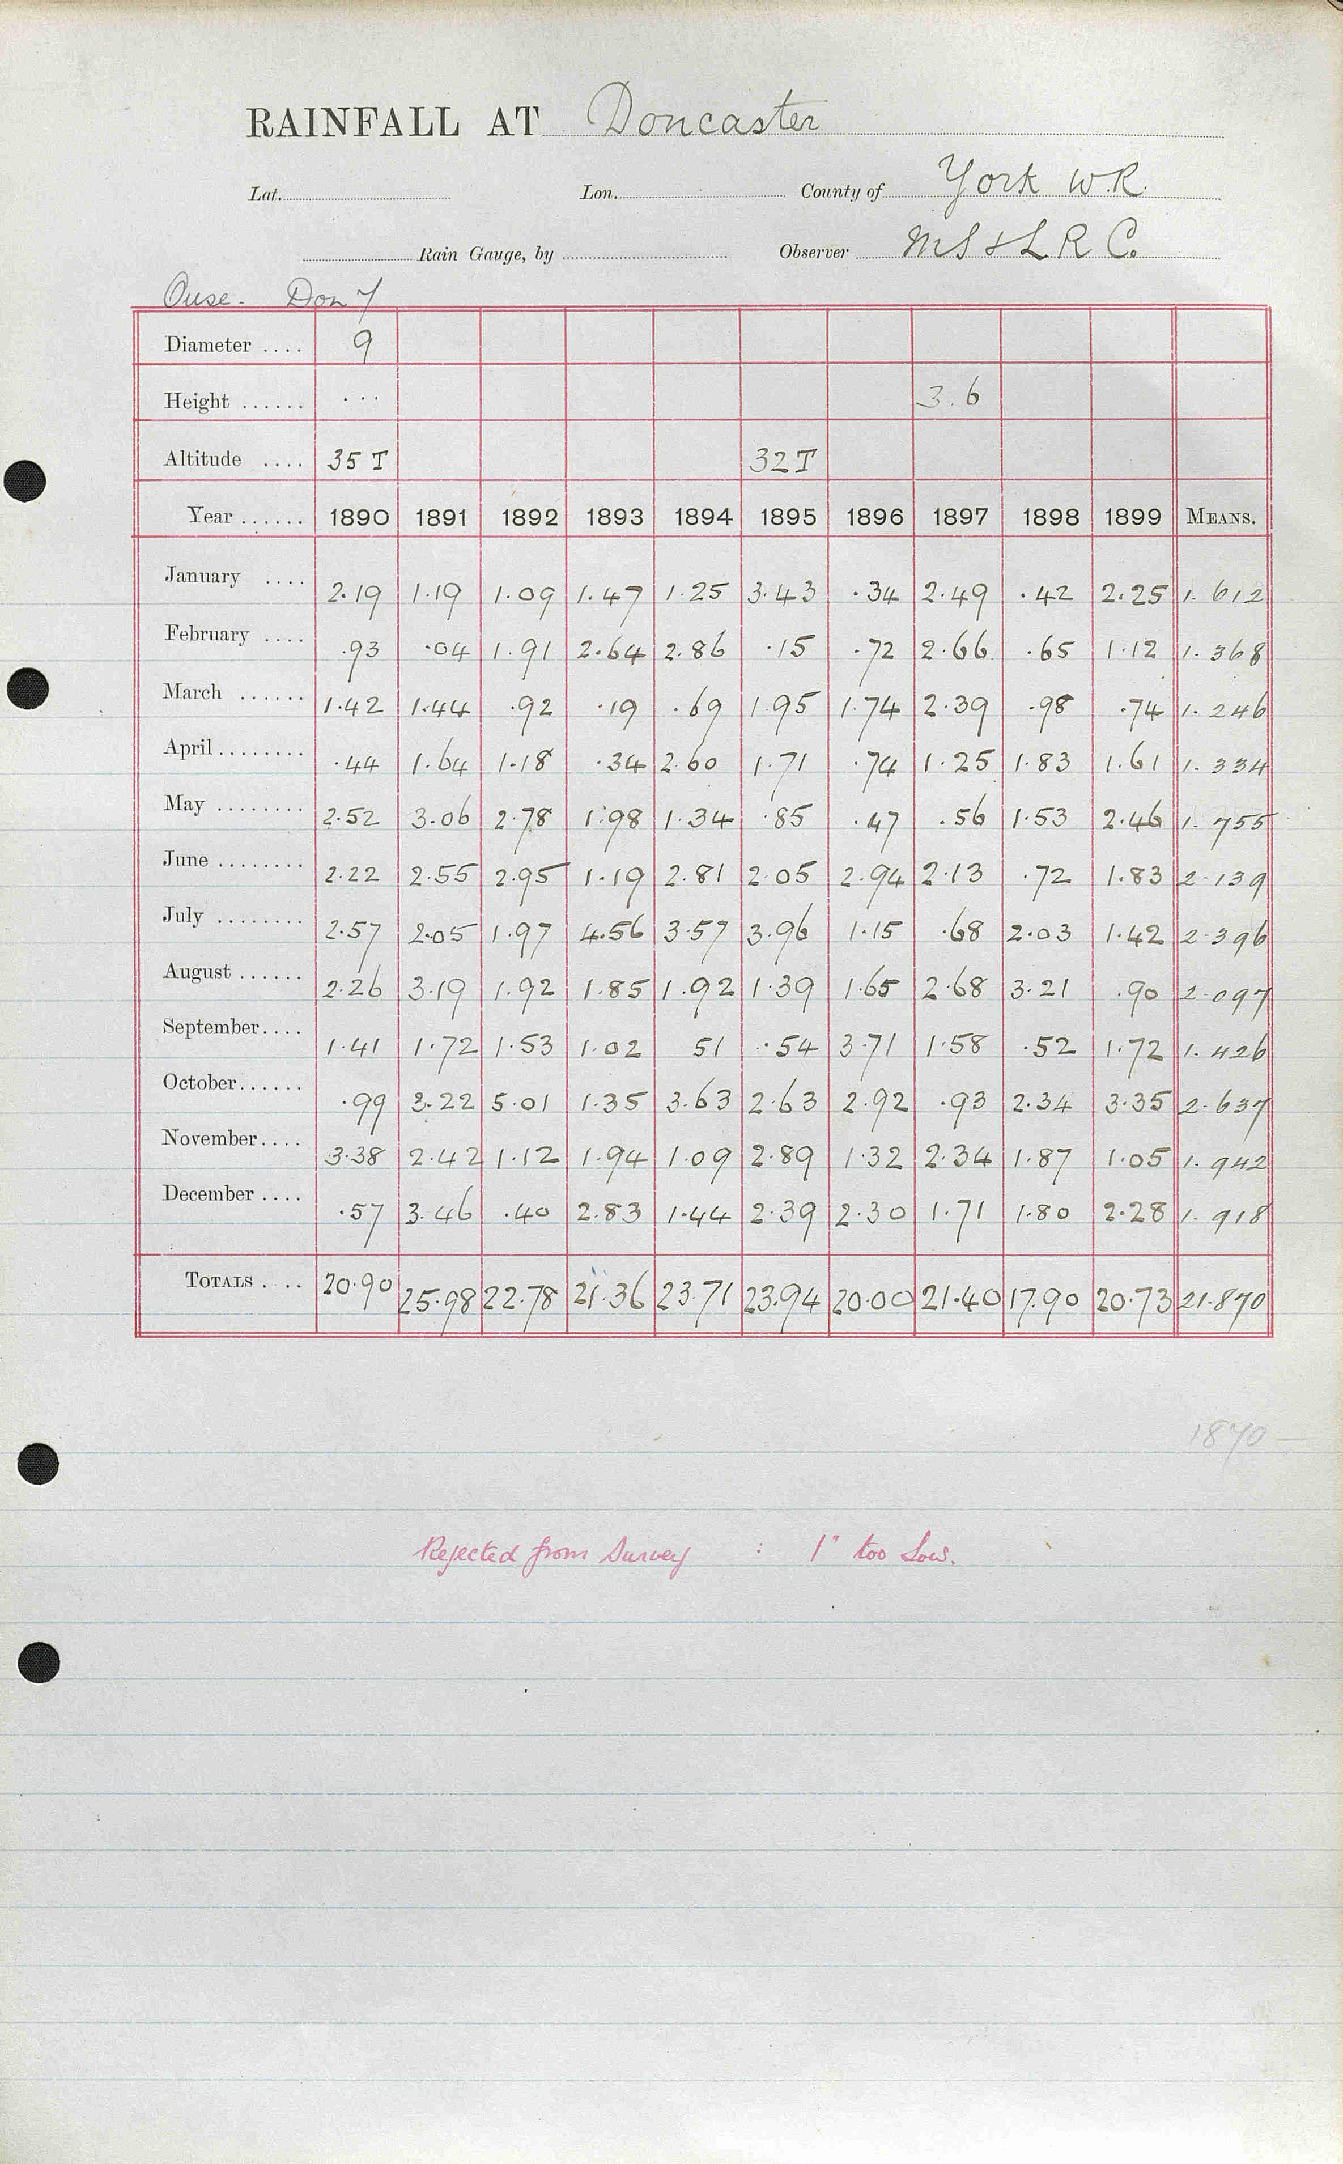 RAINFALL AT Doncaster
Lat. Lon. County of York W.R.
Rain Gauge, by Observer M S & L R Co.
Ouse. Don 7
Diameter .... 9
Height ...... ... 3.6
Altitude .... 35 T 32 T
Year ...... 1890 1891 1892 1893 1894 1895 1896 1897 1898 1899 MEANS.
January .... 2.19 1.19 1.09 1.47 1.25 3.43 .34 2.49 .42 2.25 1.612
February .... .93 .04 1.91 2.64 2.86 .15 .72 2.66 .65 1.12 1.368
March ...... 1.42 1.44 .92 .19 .69 1.95 1.74 2.39 .98 .74 1.246
April ........ .44 1.64 1.18 .34 2.60 1.71 .74 1.25 1.83 1.61 1.334
May ........ 2.52 3.06 2.78 1.98 1.34 .85 .47 .56 1.53 2.46 1.755
June ........ 2.22 2.55 2.95 1.19 2.81 2.05 2.94 2.13 .72 1.83 2.139
July ........ 2.57 2.05 1.97 4.56 3.57 3.96 1.15 .68 2.03 1.42 2.396
August ...... 2.26 3.19 1.92 1.85 1.92 1.39 1.65 2.68 3.21 .90 2.097
September.... 1.41 1.72 1.53 1.02 51 .54 3.71 1.58 .52 1.72 1.426
October...... .99 3.22 5.01 1.35 3.63 2.63 2.92 .93 2.34 3.35 2.637
November.... 3.38 2.42 1.12 1.94 1.09 2.89 1.32 2.34 1.87 1.05 1.942
December .... .57 3.46 .40 2.83 1.44 2.39 2.30 1.71 1.80 2.28 1.918
TOTALS .... 20.90 25.98 22.78 21.36 23.71 23.94 20.00 21.40 17.90 20.73 21.870
1870 —
Rejected from Survey : 1" too Low.